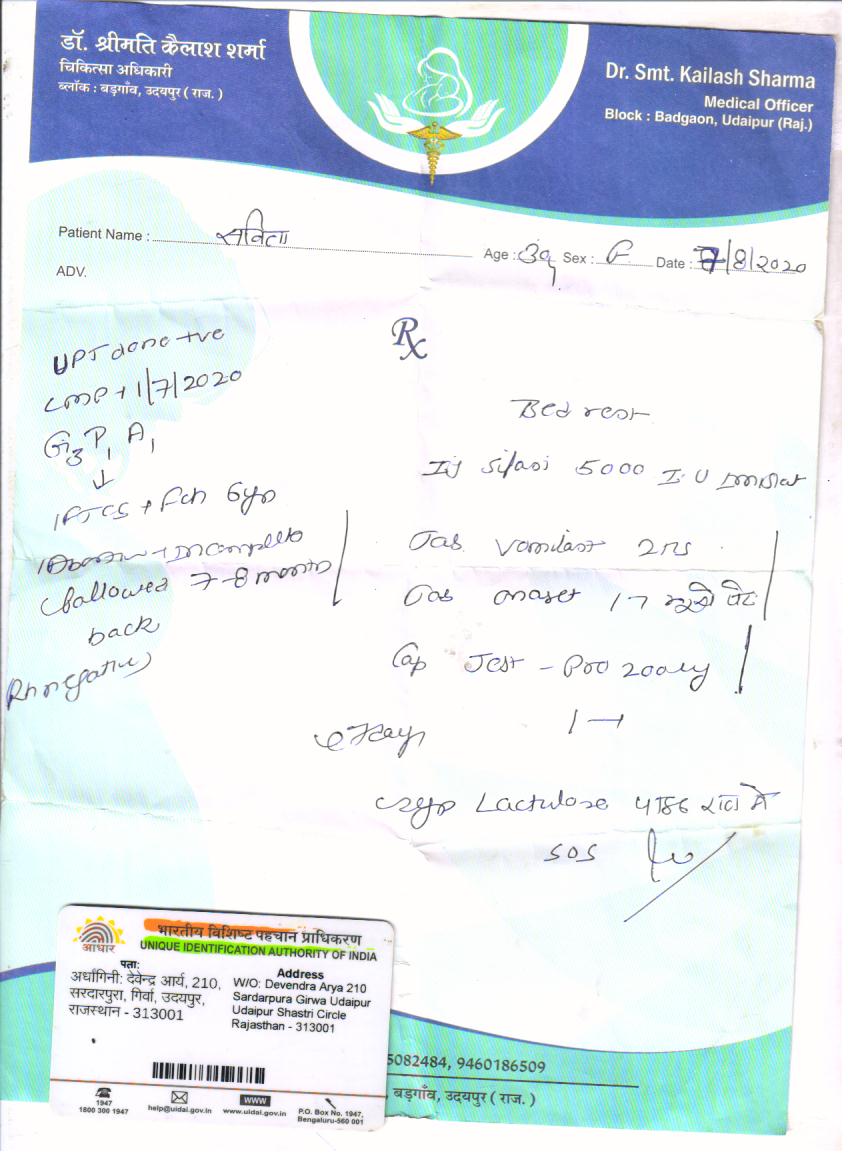 डॉ. श्रीमति कैलाश शर्मा
चिकित्सा अधिकारी
ब्लॉक : बड़गाँव, उदयपुर ( राज. )
Dr. Smt. Kailash Sharma
Medical Officer
Block : Badgaon, Udaipur (Raj.)
Patient Name : सविता
Age : 39 Sex : F Date : 7/8/2020
ADV.
UPT done +ve
LMP + 1/7/2020
G3 P1 A1
↓
1 FTCS + Fch 6yr
Incomplete
followed 7-8 month
back
Rh negative
Rx
Bed rest
Inj 5000 I.U
Tab Vomilast
Tab 1 भूखे पेट
Cap Test - Pro 200mg
1
Syp Lactulose रात में
SOS
आधार
भारतीय विशिष्ट पहचान प्राधिकरण
UNIQUE IDENTIFICATION AUTHORITY OF INDIA
पता:
अर्धांगिनी: देवेन्द्र आर्य, 210,
सरदारपुरा, गिर्वा, उदयपुर,
राजस्थान - 313001
Address
W/O: Devendra Arya 210
Sardarpura Girwa Udaipur
Udaipur Shastri Circle
Rajasthan - 313001
1947
1800 300 1947
help@uidai.gov.in
WWW
www.uidai.gov.in
P.O. Box No. 1947,
Bengaluru-560 001
5082484, 9460186509
बड़गाँव, उदयपुर ( राज. )